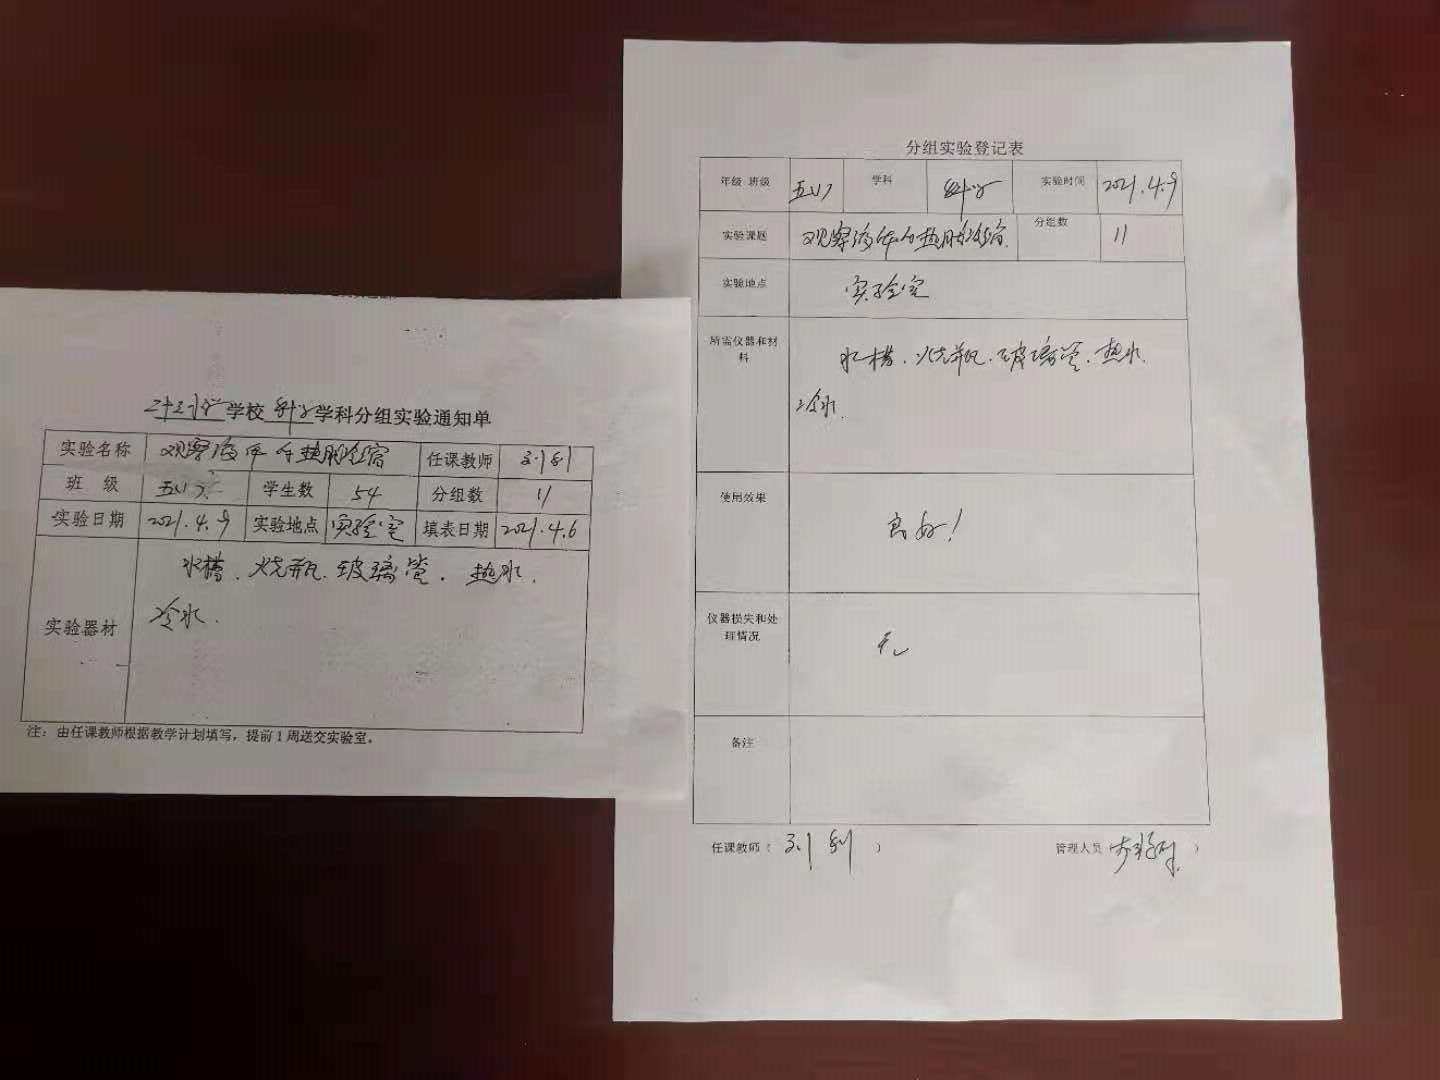 学校 科学 学科分组实验通知单
实验名称 观察液体的热胀冷缩 任课教师
班 级 五(1) 学生数 54 分组数 11
实验日期 2021.4.9 实验地点 实验室 填表日期 2021.4.6
实验器材 水槽、烧瓶、玻璃管、热水、
冷水.
注：由任课教师根据教学计划填写，提前1周送交实验室。
分组实验登记表
年级 班级 五(1) 学科 科学 实验时间 2021.4.9
实验课题 观察液体的热胀冷缩. 分组数 11
实验地点 实验室
所需仪器和材料 水槽、烧瓶、玻璃管、热水、
冷水.
使用效果 良好！
仪器损失和处理情况 无
备注
任课教师（ ） 管理人员（ ）